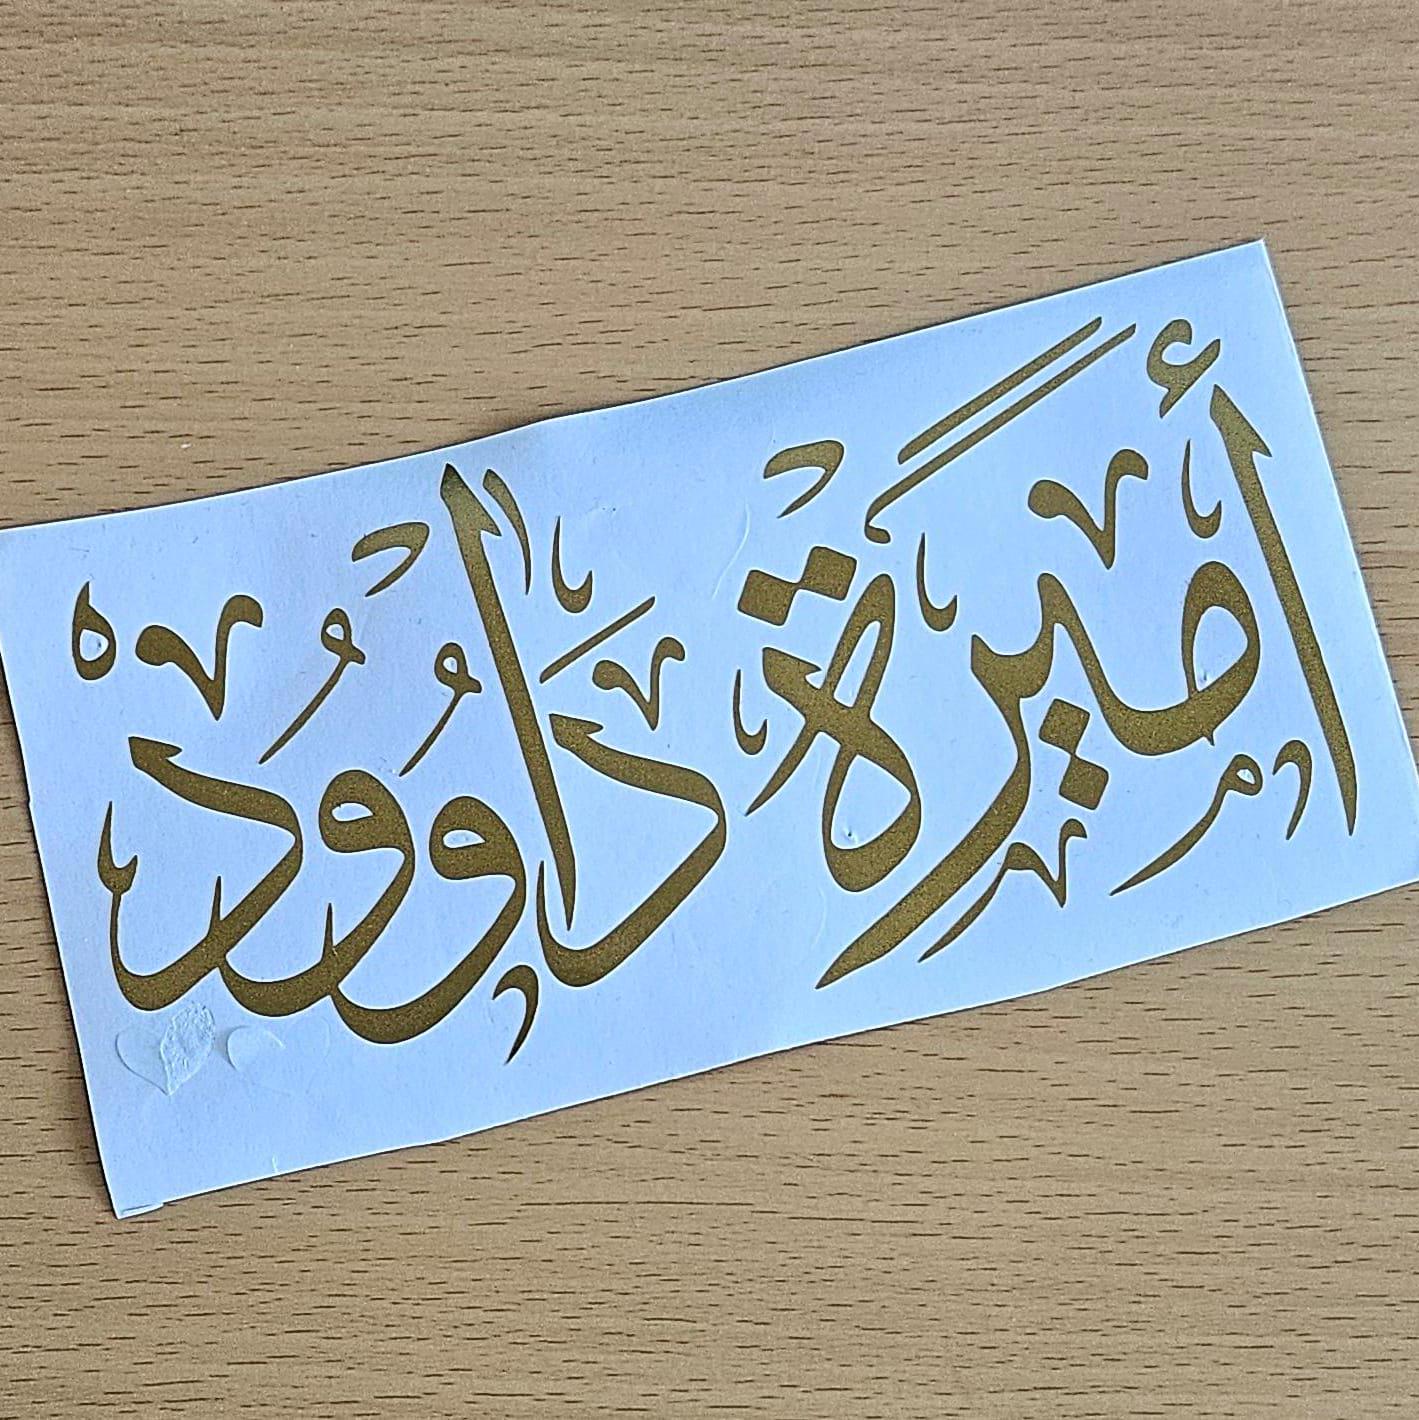 أميرة داوود